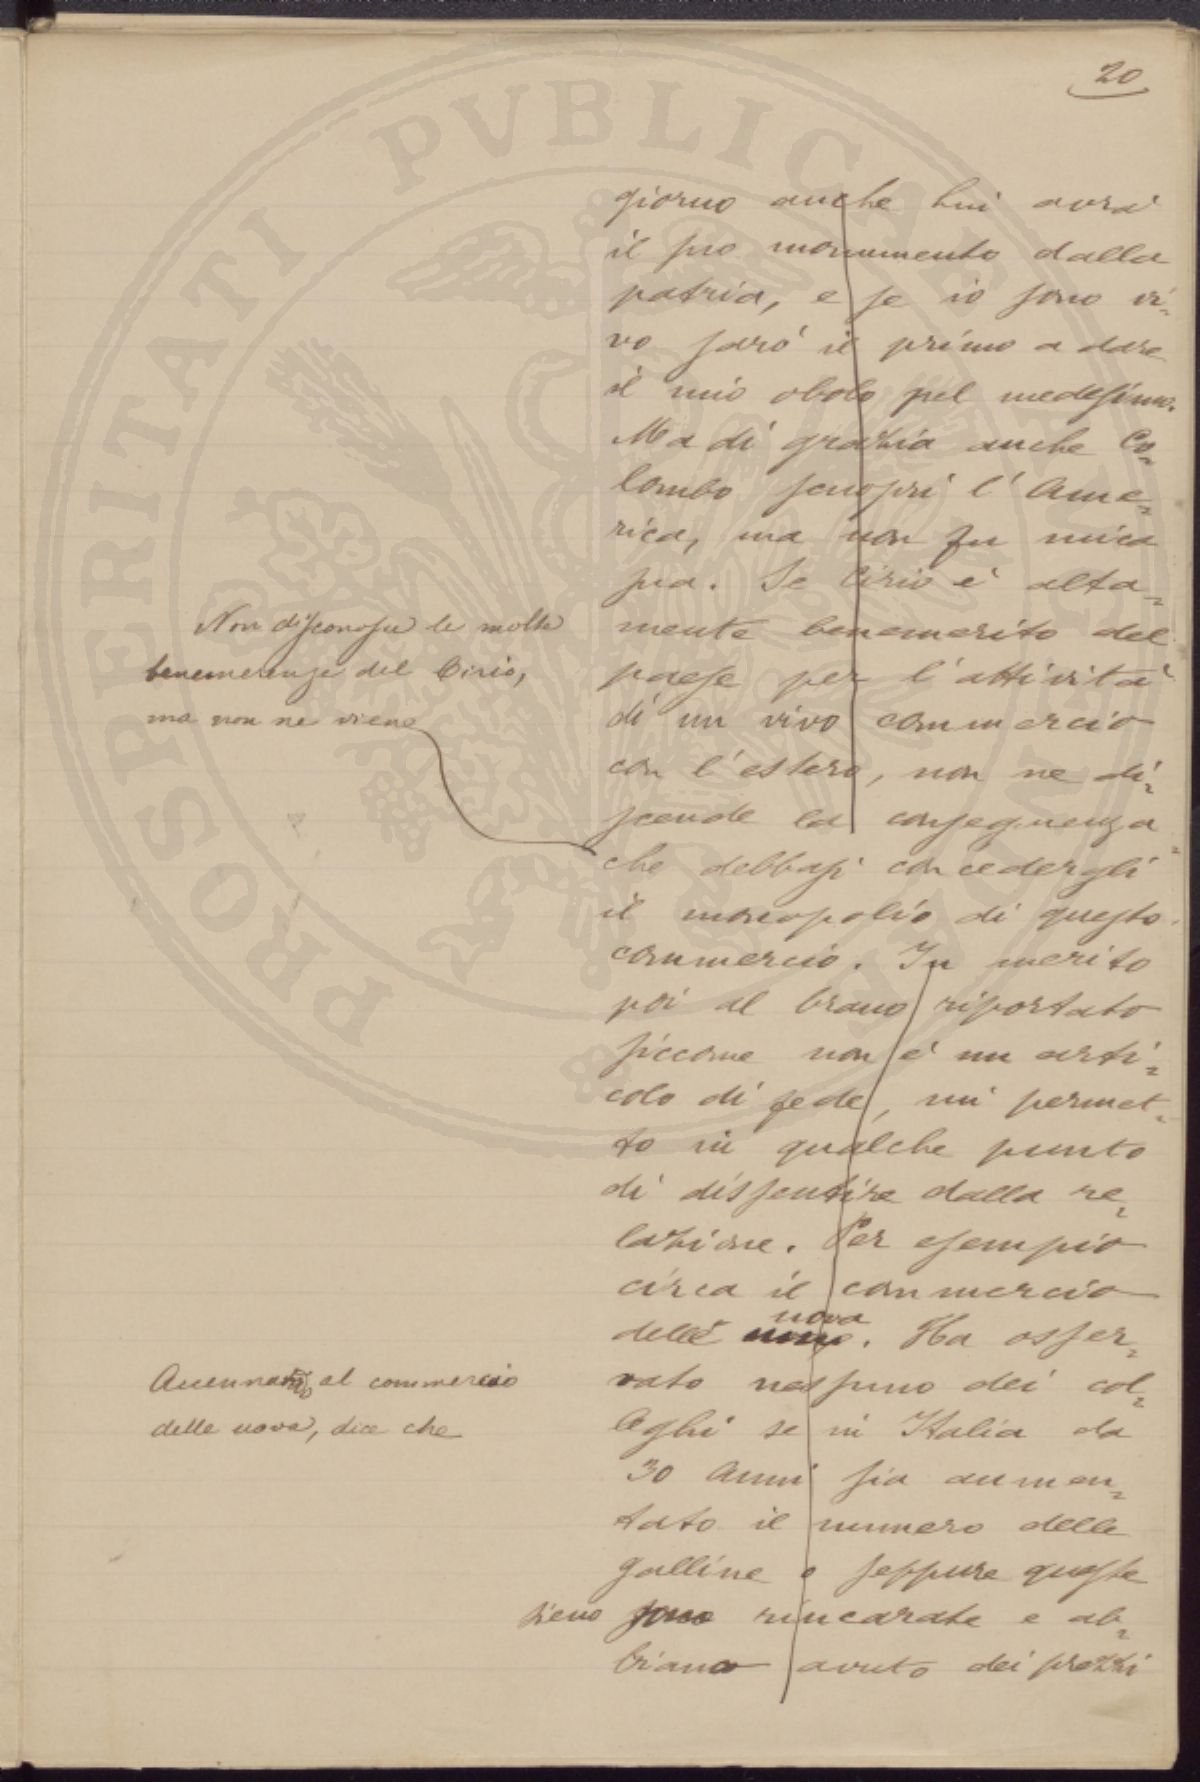 20
giorno anche lui avrà
il suo monumento dalla
patria, e se io sono vi=
vo sarò il primo a dare
il mio obolo pel medesimo.
Ma di grazia anche Co=
lombo scuoprì l'Ame=
rica, ma non fu mica
sua. Se Cirio è alta=
mente benemerito del
paese per l'attività
di un vivo commercio
con l'estero, non ne di=
scende la conseguenza
Non disconosce le molte
benemerenze del Cirio,
ma non ne viene
che debbasi concedergli
il monopolio di questo
commercio. In merito
poi al brano riportato
siccome non è un arti=
colo di fede, mi permet=
to in qualche punto
di dissentire dalla re=
lazione. Per esempio
circa il commercio
delle uova. Ha osser=
Accennato al commercio
delle uova, dice che
vato nessuno dei col=
leghi se in Italia da
30 anni sia aumen=
tato il numero delle
galline e seppure queste
sieno sono rincarate e ab=
biano avuto dei prezzi
PROSPERITATI PVBLICAE